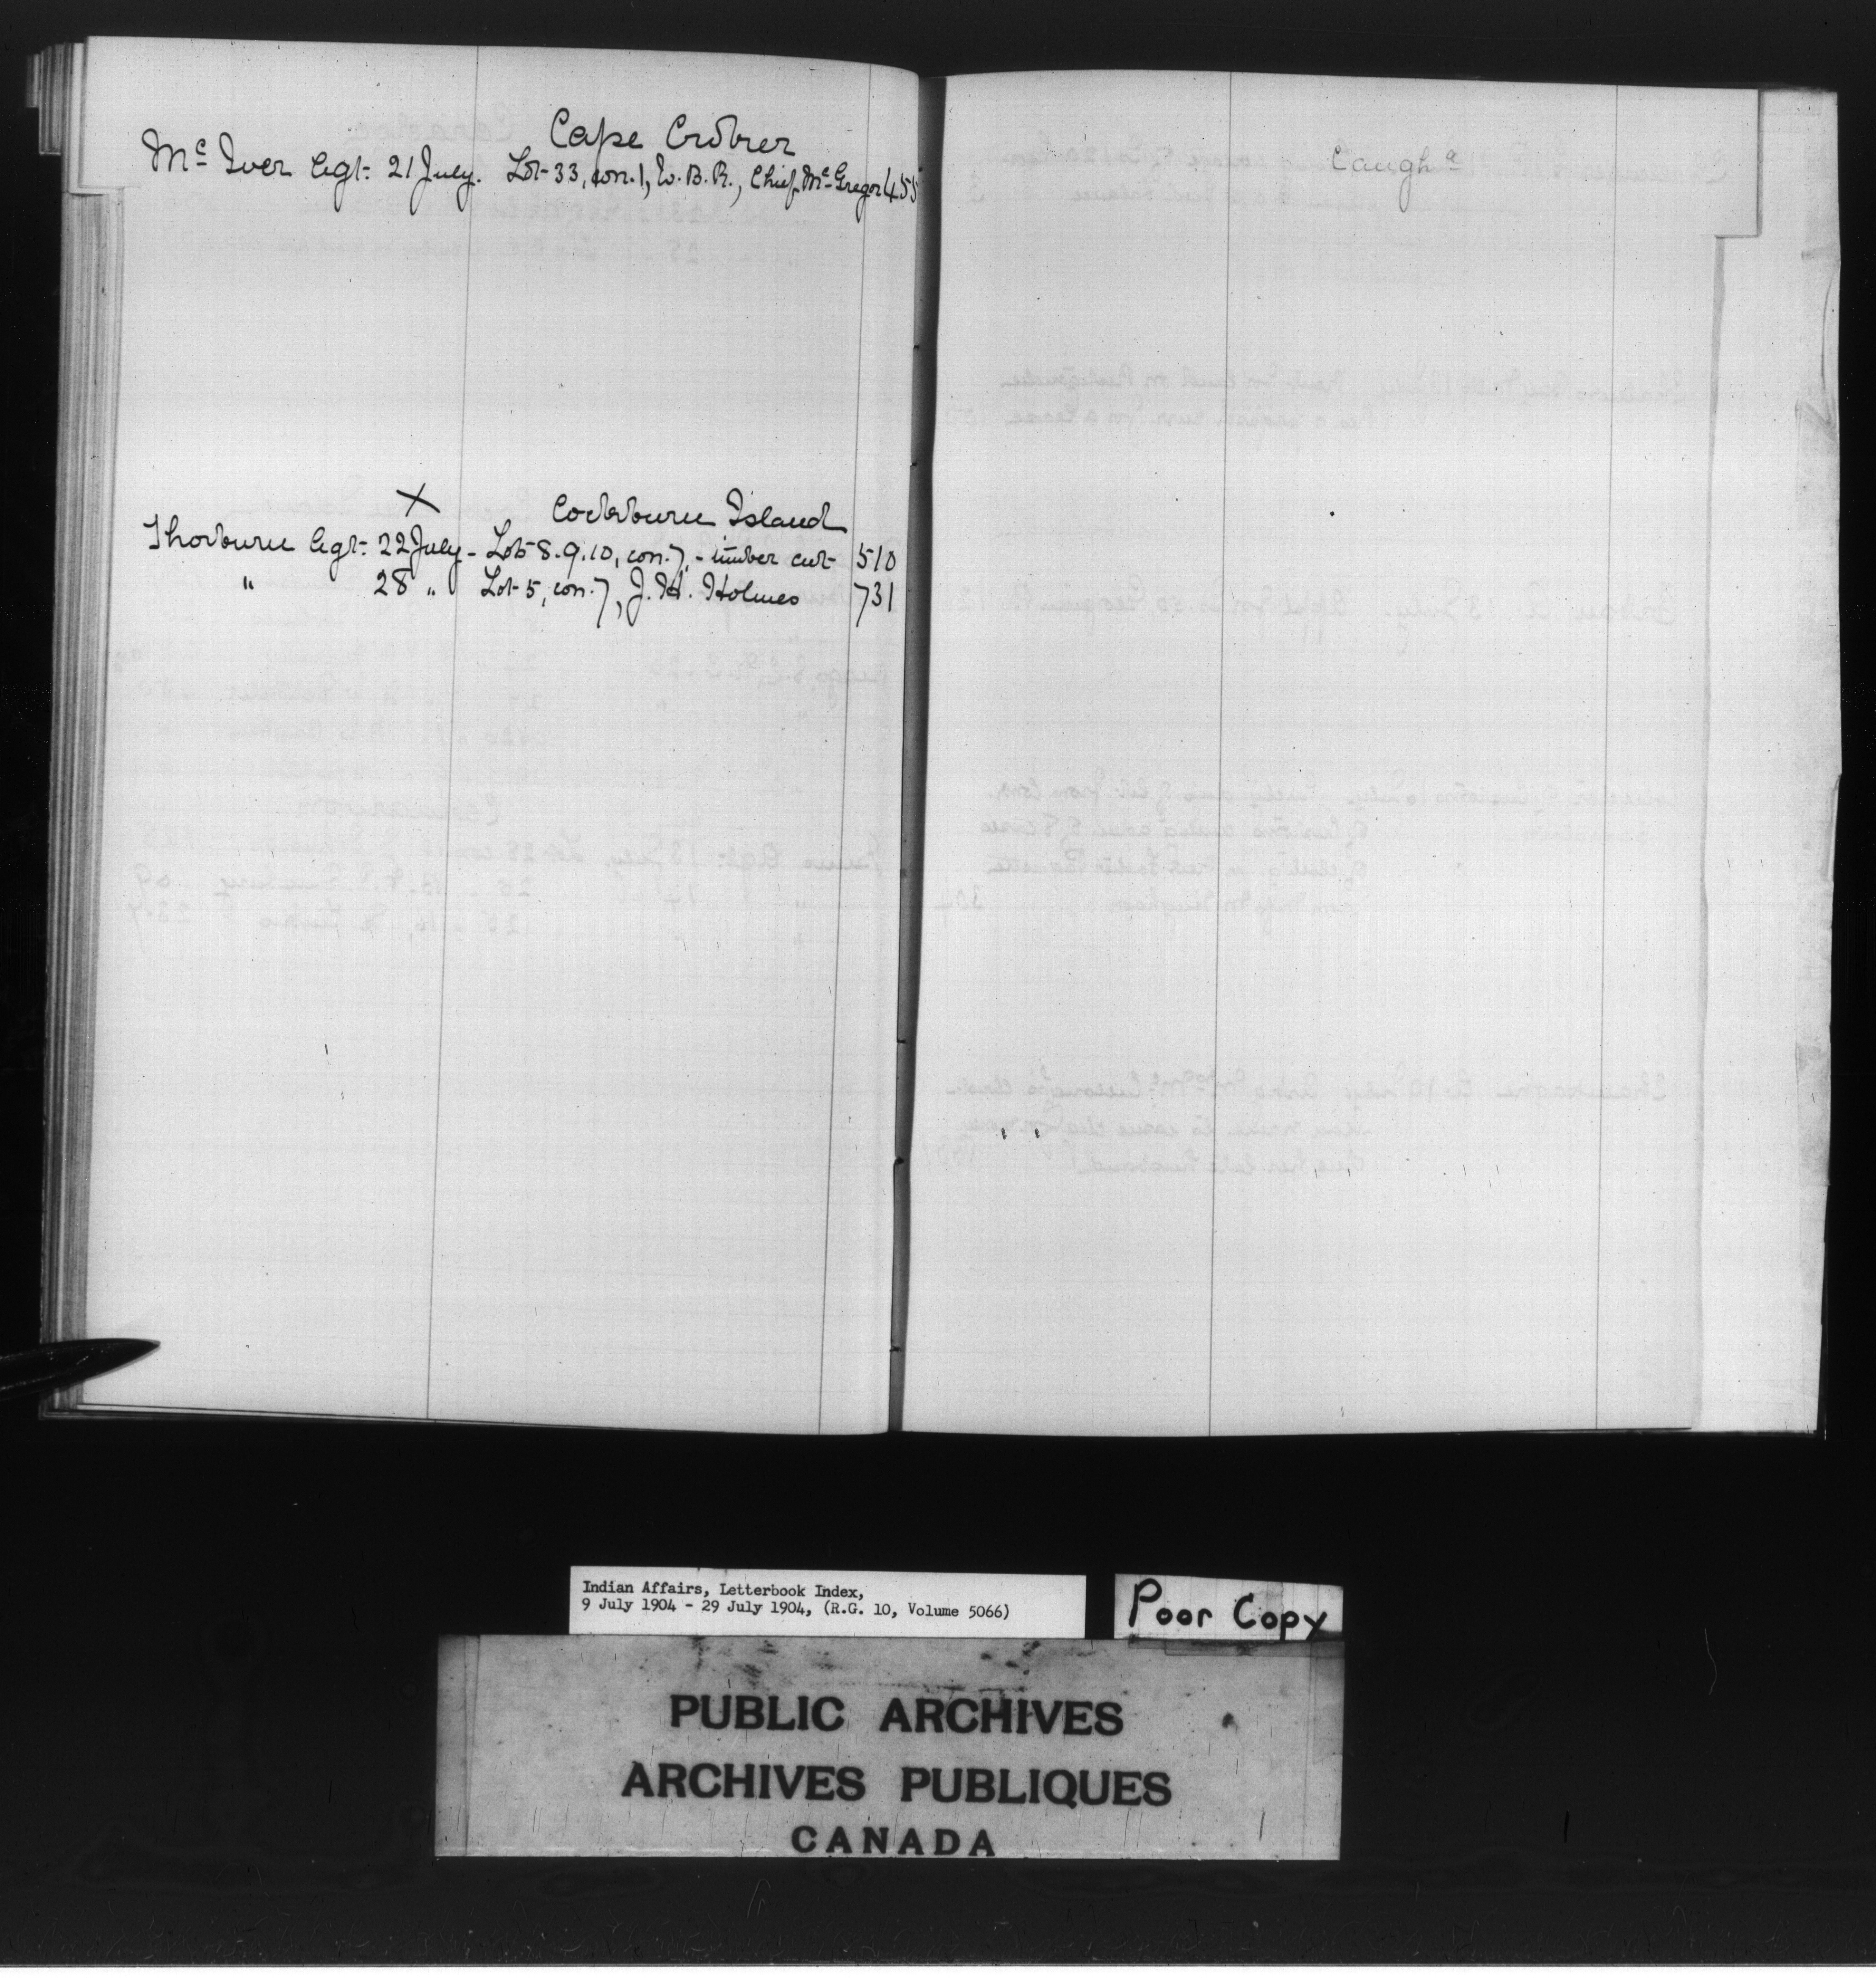 Cape Croker
Mc Iver Agt. 21 July. Lot 33, con. 1, E. B. R., Chief Mc Gregor 455
X Cockburn Island
Thorburn Agt. 22 July - Lots 8. 9. 10, con. 7, - timber cut 510
" 28 " Lot 5, con. 7, J. H. Holmes 731
Caugha
Indian Affairs, Letterbook Index,
9 July 1904 - 29 July 1904, (R.G. 10, Volume 5066)
Poor Copy
PUBLIC ARCHIVES
ARCHIVES PUBLIQUES
CANADA